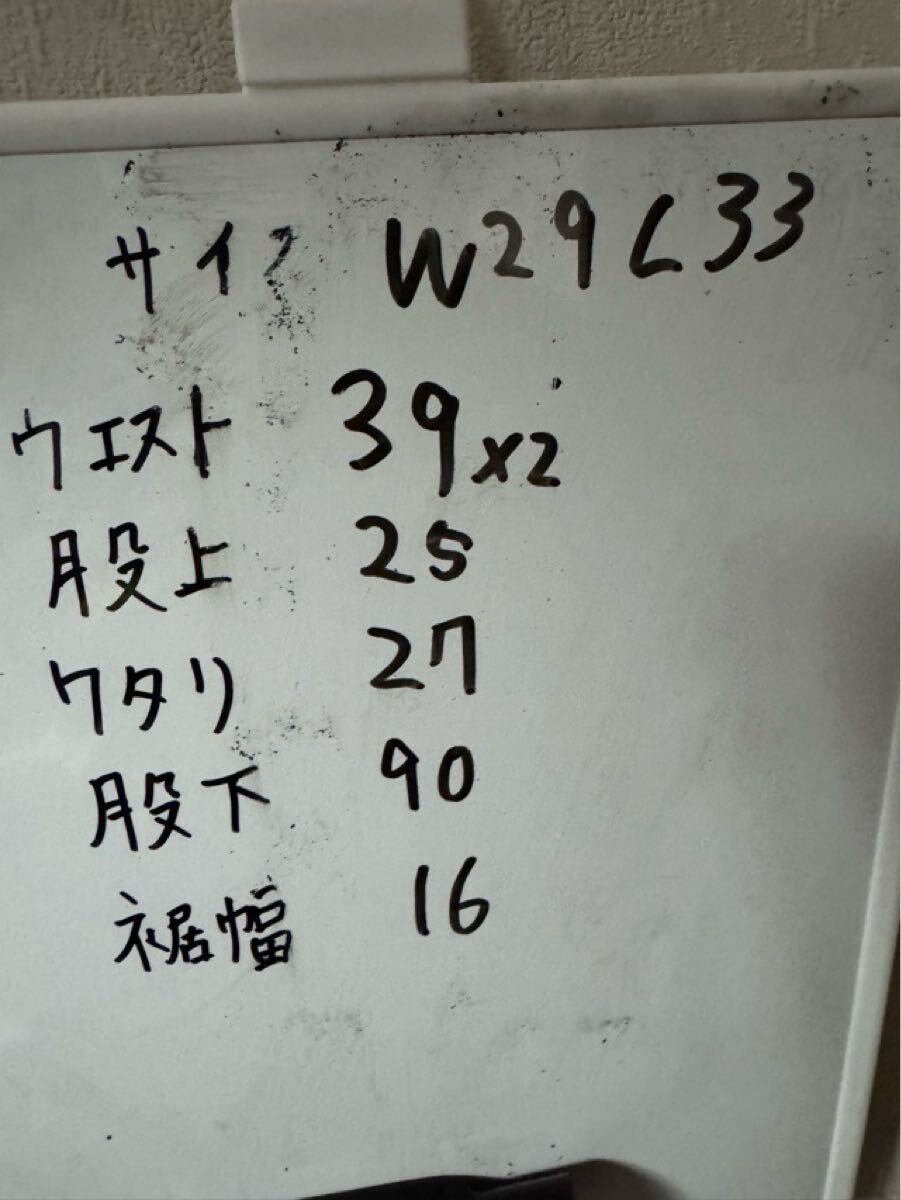 サイズ W29 L33
ウエスト 39x2
股上 25
ワタリ 27
股下 90
裾幅 16